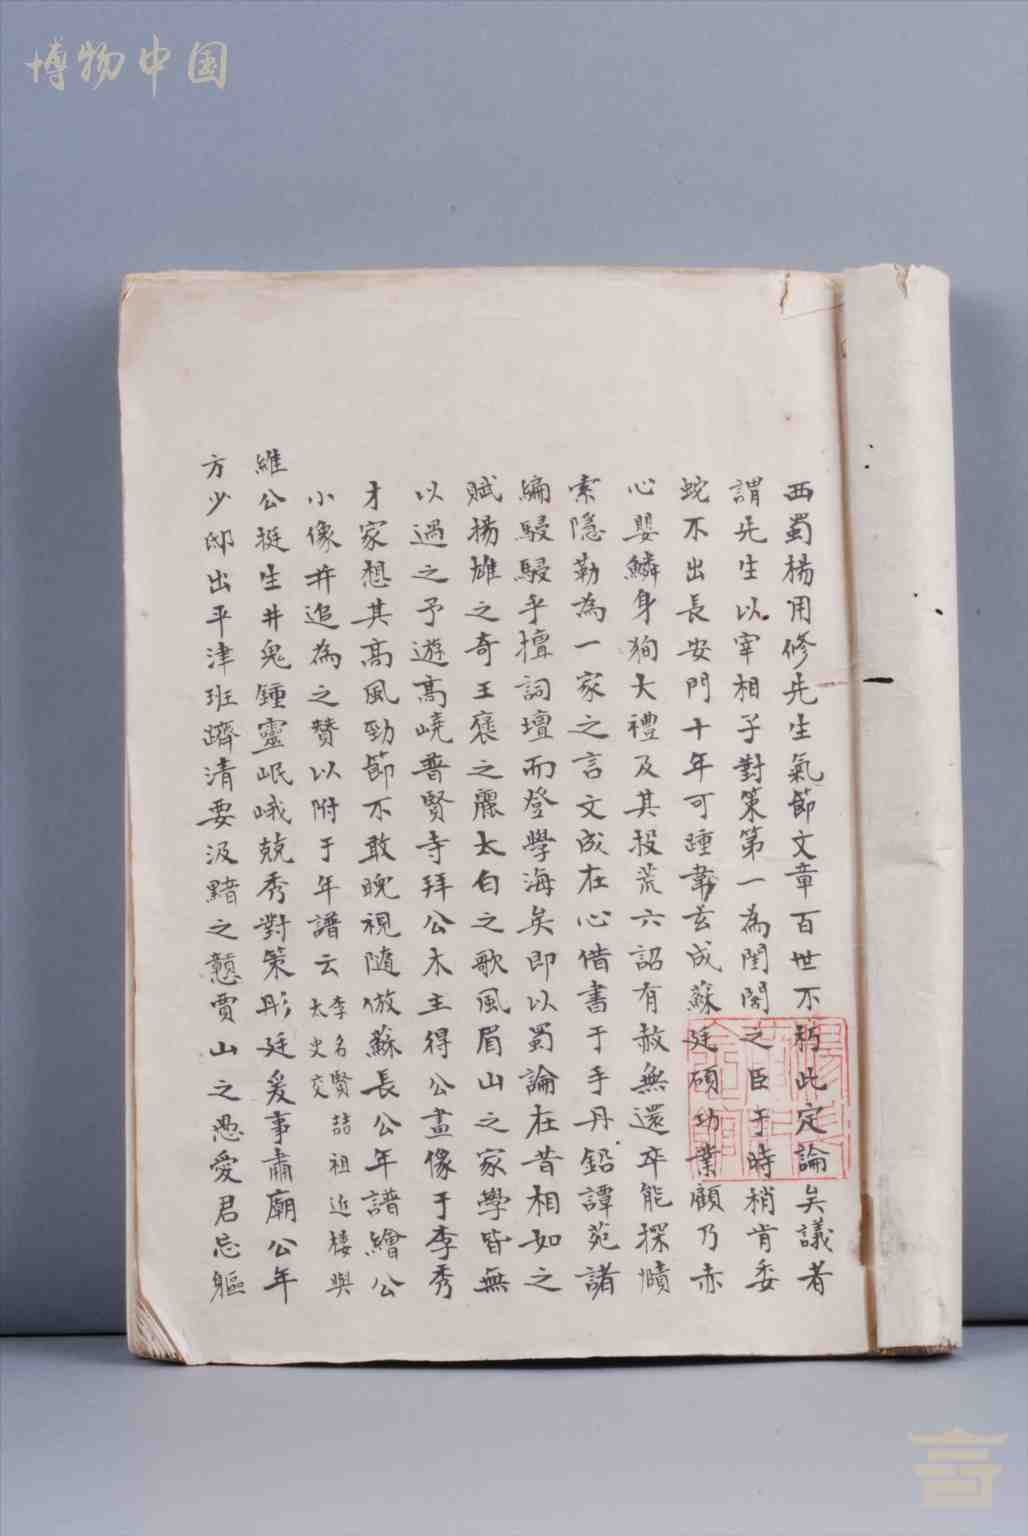 博物中国
西蜀楊用修先生氣節文章百世不朽此定論矣議者
謂先生以宰相子對策第一為閨閤之臣于時稍肯委
蛇不出長安門十年可踵韋玄成蘇廷碩功業顧乃赤
心嬰鱗身狥大禮及其投荒六詔有赦無還卒能探賾
索隱勒為一家之言文成在心借書于手丹鉛譚苑諸
編駸駸乎擅詞壇而登學海矣即以蜀論在昔相如之
賦揚雄之奇王褒之麗太白之歌風眉山之家學皆無
以過之予遊高嶢普賢寺拜公木主得公畫像于李秀
才家想其高風勁節不敢睨視隨倣蘇長公年譜繪公
小像并追為之贊以附于年譜云李名賢喆祖近樓與
太史交
維公挺生井鬼鍾靈岷峨兢秀對策彤廷爰事肅廟公年
方少邸出平津班躋清要汲黯之戇賈山之愚愛君忘軀